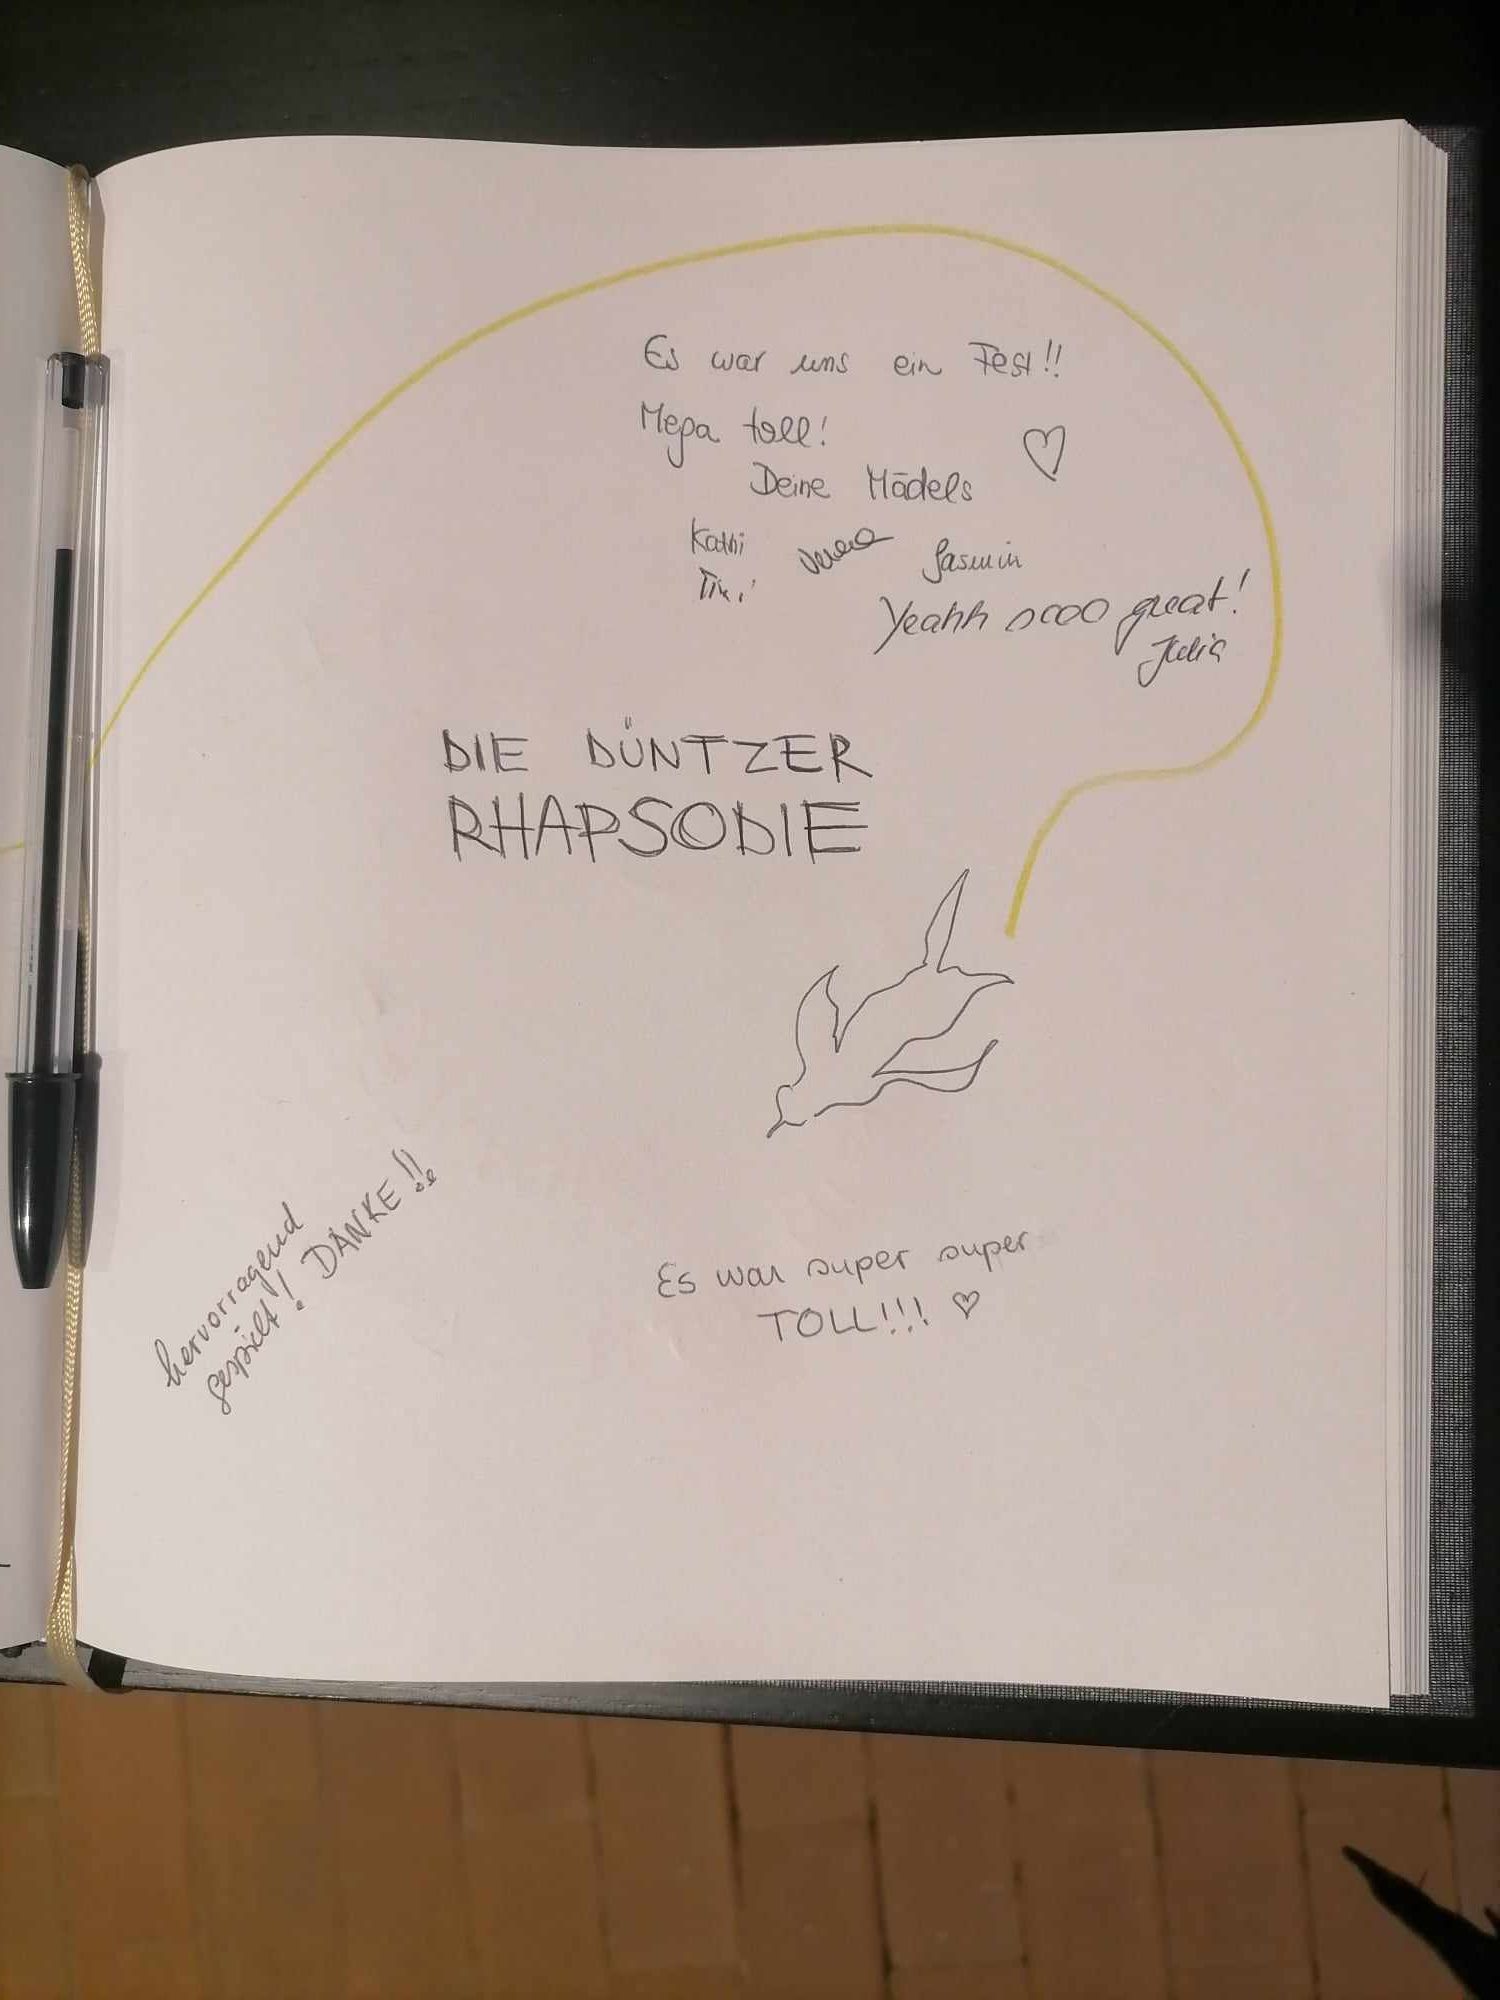 Es war uns ein Fest!!
Mega toll!
Deine Mädels
Kathi Verena Jasmin
Yeahh sooo great!
Julia
DIE DÜNTZER
RHAPSODIE
hervorragend
gespielt! DANKE!!
Es war super super
TOLL!!!